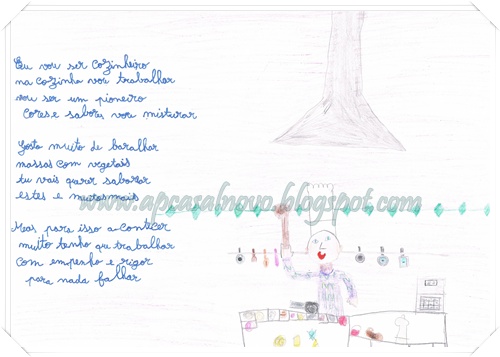 Eu vou ser cozinheiro
na cozinha vou trabalhar
vou ser um pioneiro
cores e sabores vou misturar
Gosto muito de baralhar
massas com vegetais
tu vais querer saborear
estes e muitos mais
Mas para isso acontecer
muito tenho que trabalhar
com empenho e rigor
para nada falhar
www.apcasalnovo.blogspot.com